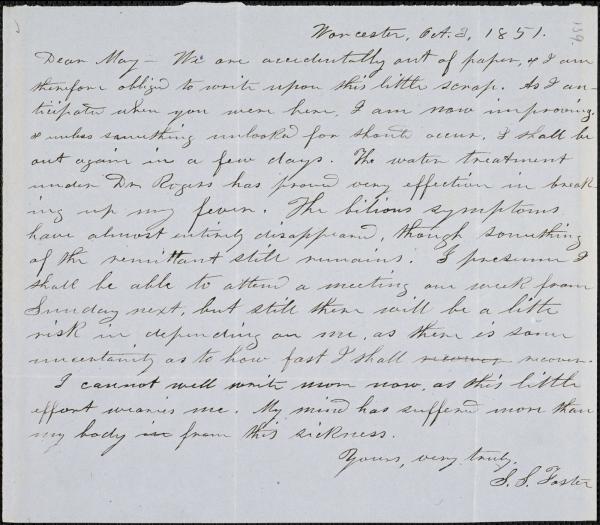 139.
Worcester, Oct. 3, 1851.
Dear May - We are accidentally out of paper, & I am
therefore obliged to write upon this little scrap. As I an-
ticipated when you were here, I am now improving,
& unless something unlooked for should occur, I shall be
out again in a few days. The water treatment
under Dr. Rogers has proved very effective in break-
ing up my fever. The bilious symptoms
have almost entirely disappeared, though something
of the remittant still remains. I presume I
shall be able to attend a meeting one week from
Sunday next, but still there will be a little
risk in depending on me, as there is some
uncertainty as to how fast I shall recover recover.
I cannot well write more now, as this little
effort wearies me. My mind has suffered more than
my body in from this sickness.
Yours, very truly,
S. S. Foster